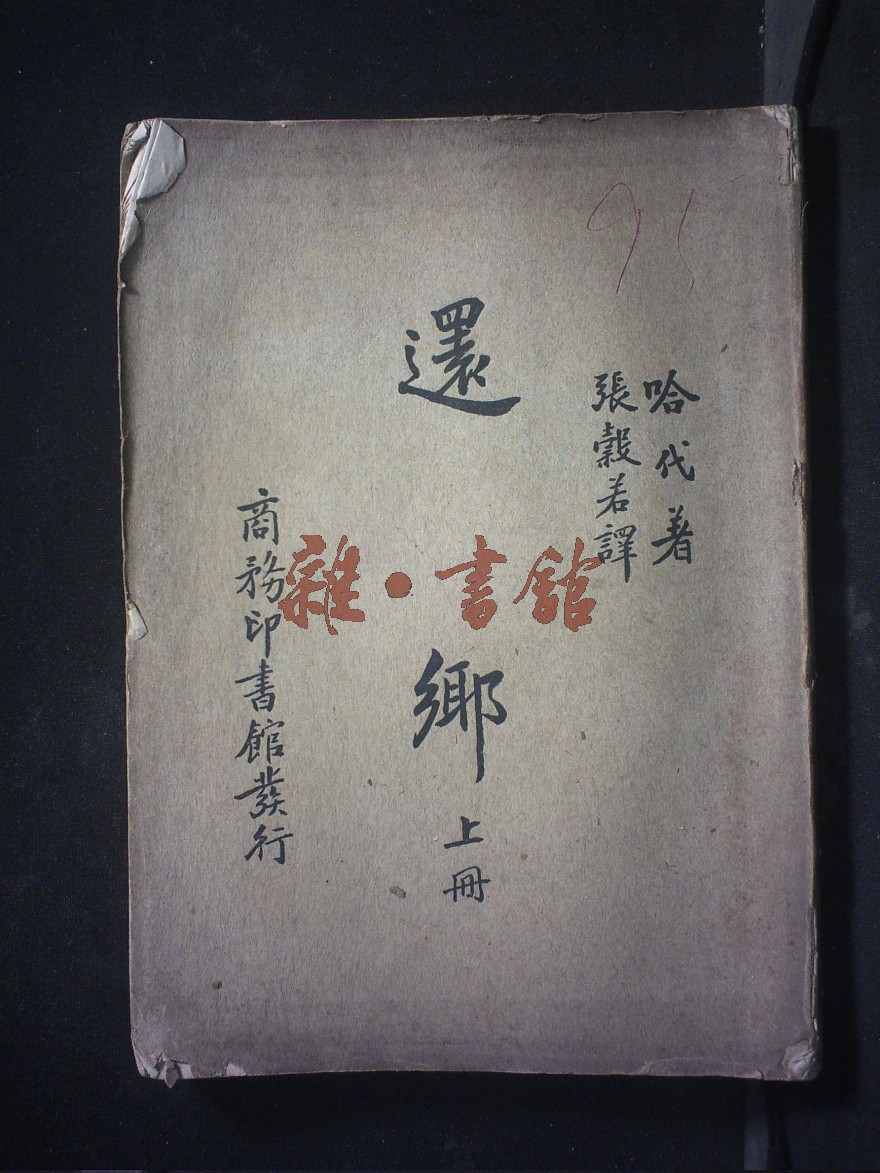 哈代著
張穀若譯
還鄉
上冊
商務印書館發行
雜·書館
95